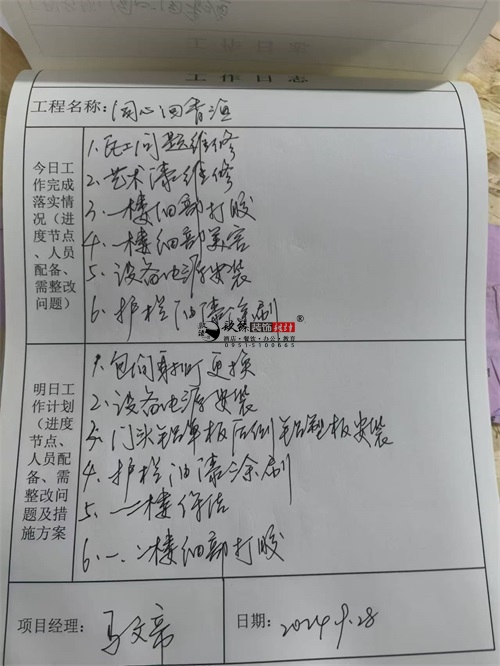 工作日志
工作日志
工程名称：同心回香渔
今日工作完成落实情况（进度节点、人员配备、需整改问题）
1、瓦工问题维修
2、艺术漆维修
3、一楼细部打胶
4、一楼细部美容
5、设备电源安装
6、护栏油漆涂刷
装饰设计®
酒店·餐饮·办公·教育
0951-5100665
明日工作计划（进度节点、人员配备、需整改问题及措施方案）
1、包间射灯更换
2、设备电源安装
3、门头铝单板后侧铝塑板安装
4、护栏油漆涂刷
5、一二楼保洁
6、一、二楼细部打胶
项目经理：马文
日期：2024 9.28